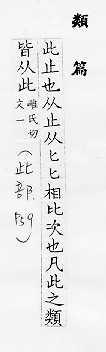 類篇
此止也从止从匕匕相比次也凡此之類
皆从此 雌氏切
文一
(此部. P59)